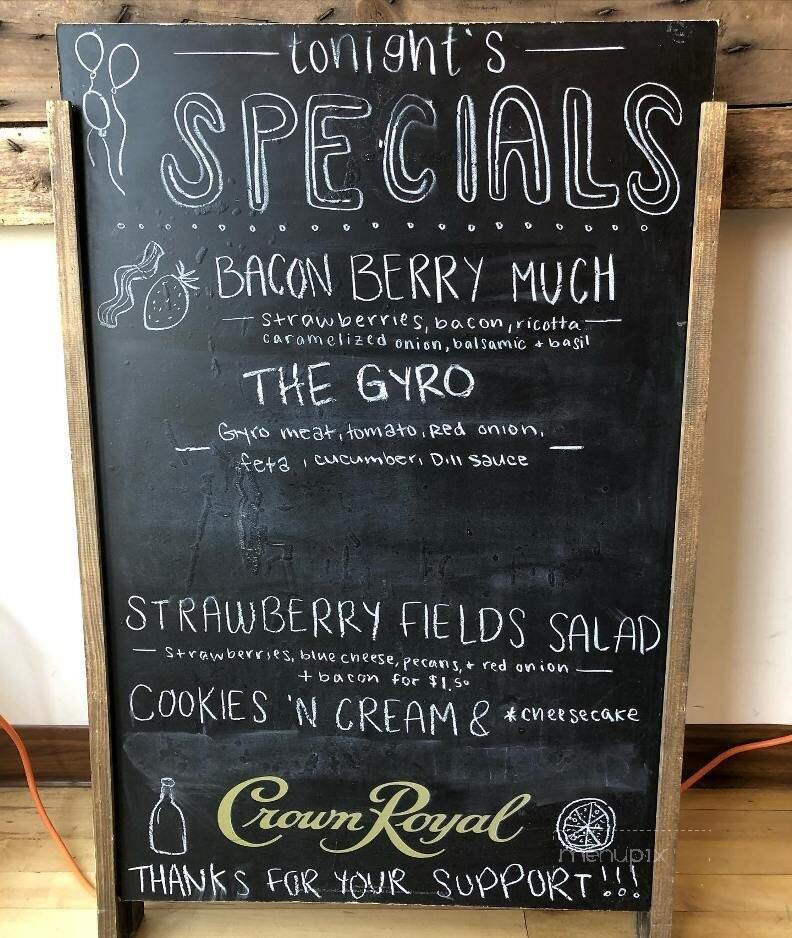 tonight's
SPECIALS
BACON BERRY MUCH
strawberries, bacon, ricotta
caramelized onion, balsamic + basil
THE GYRO
Gyro meat, tomato, Red onion,
feta, cucumber, Dill sauce
STRAWBERRY FIELDS SALAD
strawberries, blue cheese, pecans, + red onion
+ bacon for $1.50
COOKIES 'N CREAM & *cheesecake
Crown Royal
menupix
THANKS FOR YOUR SUPPORT!!!